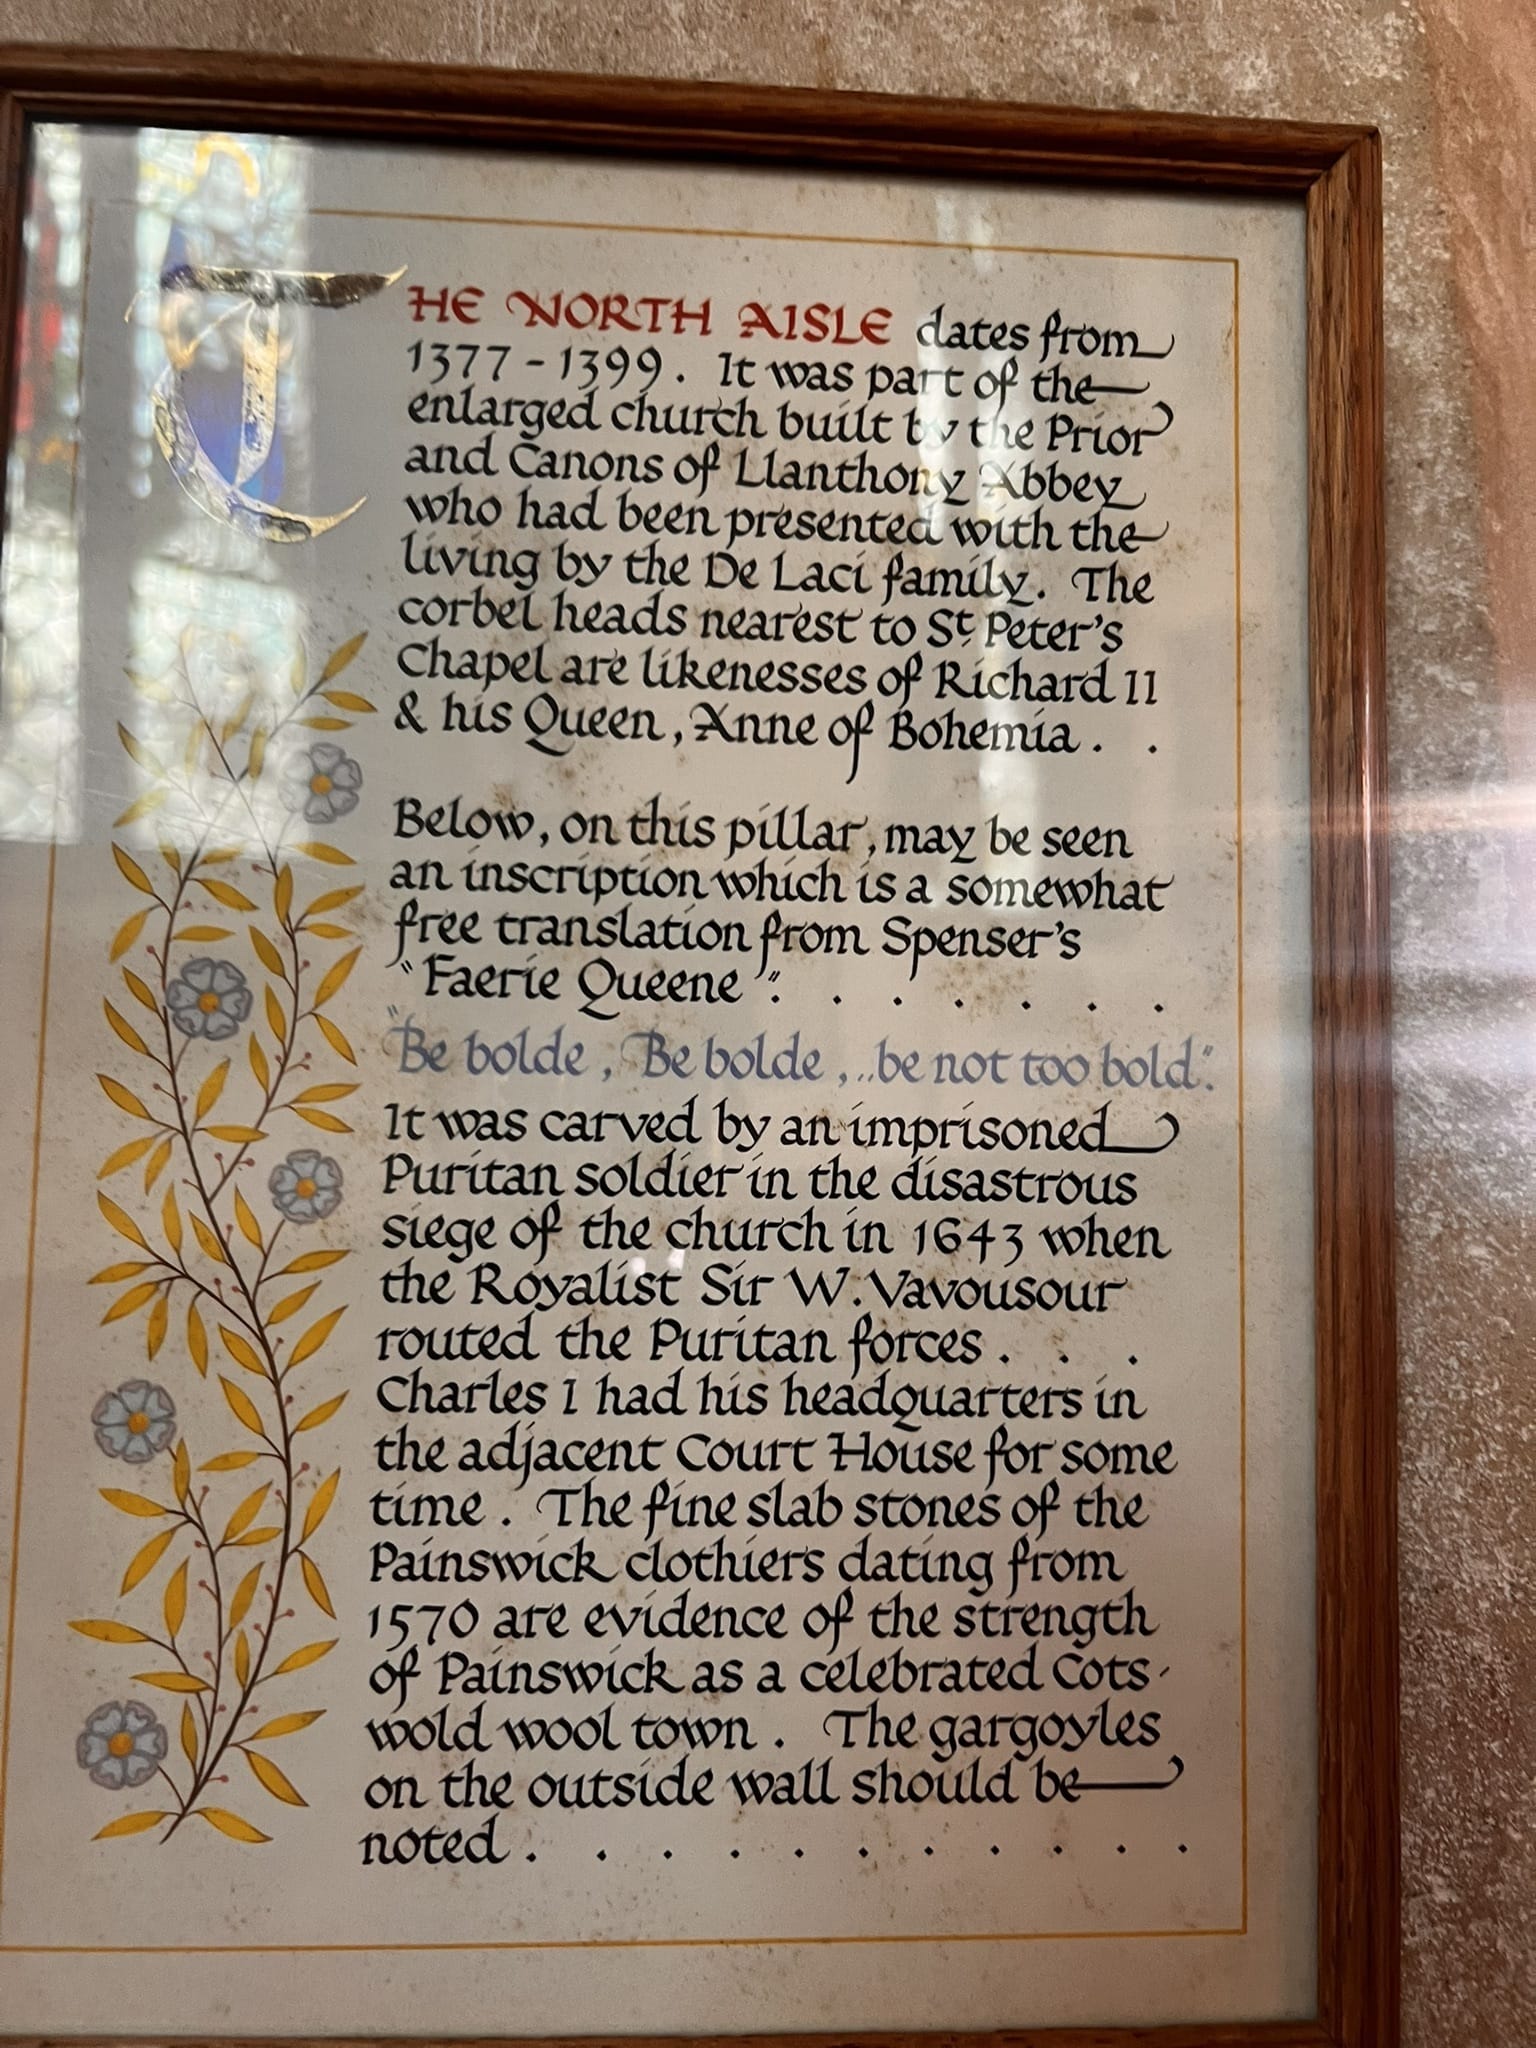 THE NORTH AISLE dates from
1377 - 1399. It was part of the
enlarged church built by the Prior
and Canons of Llanthony Abbey
who had been presented with the
living by the De Laci family. The
corbel heads nearest to St. Peter's
Chapel are likenesses of Richard II
& his Queen, Anne of Bohemia. .
Below, on this pillar, may be seen
an inscription which is a somewhat
free translation from Spenser's
"Faerie Queene". . . . . . .
"Be bolde, Be bolde, ..be not too bold".
It was carved by an imprisoned
Puritan soldier in the disastrous
siege of the church in 1643 when
the Royalist Sir W. Vavousour
routed the Puritan forces. . .
Charles I had his headquarters in
the adjacent Court House for some
time. The fine slab stones of the
Painswick clothiers dating from
1570 are evidence of the strength
of Painswick as a celebrated Cots-
wold wool town. The gargoyles
on the outside wall should be
noted. . . . . . . . . . .